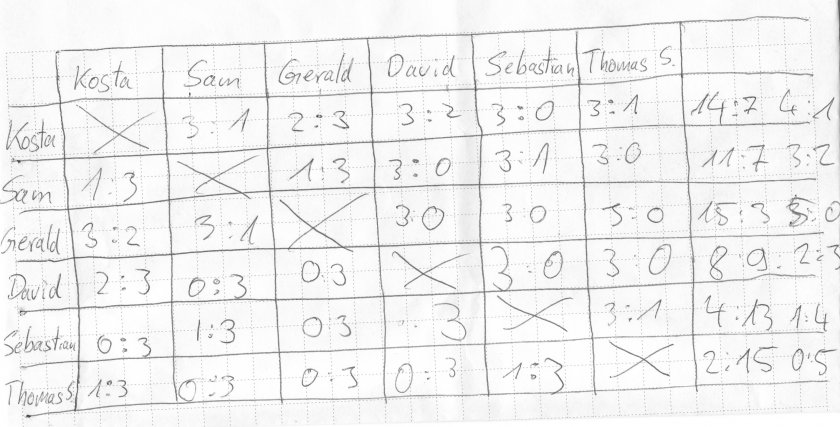 Kosta Sam Gerald David Sebastian Thomas S.
Kosta 3:1 2:3 3:2 3:0 3:1 14:7 4:1
Sam 1:3 1:3 3:0 3:1 3:0 11:7 3:2
Gerald 3:2 3:1 3:0 3:0 3:0 15:3 5:0
David 2:3 0:3 0:3 3:0 3:0 8:9 2:3
Sebastian 0:3 1:3 0:3 :3 3:1 4:13 1:4
Thomas S. 1:3 0:3 0:3 0:3 1:3 2:15 0:5